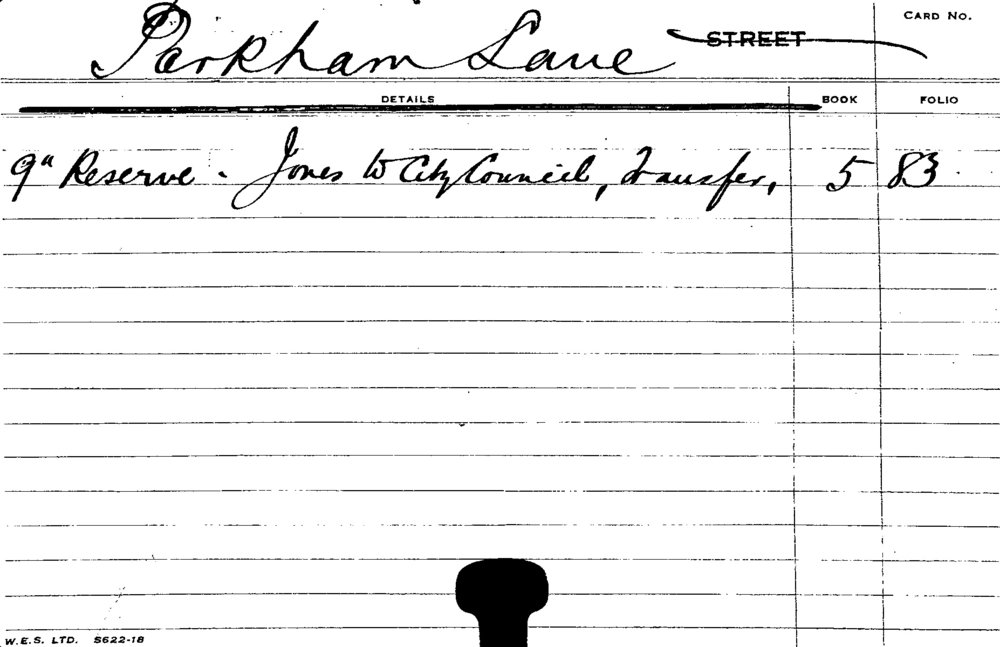 Parkham Lane STREET CARD NO.
DETAILS BOOK FOLIO
9" Reserve - Jones to City Council, Transfer, 5 83
W.E.S. LTD. S622-18